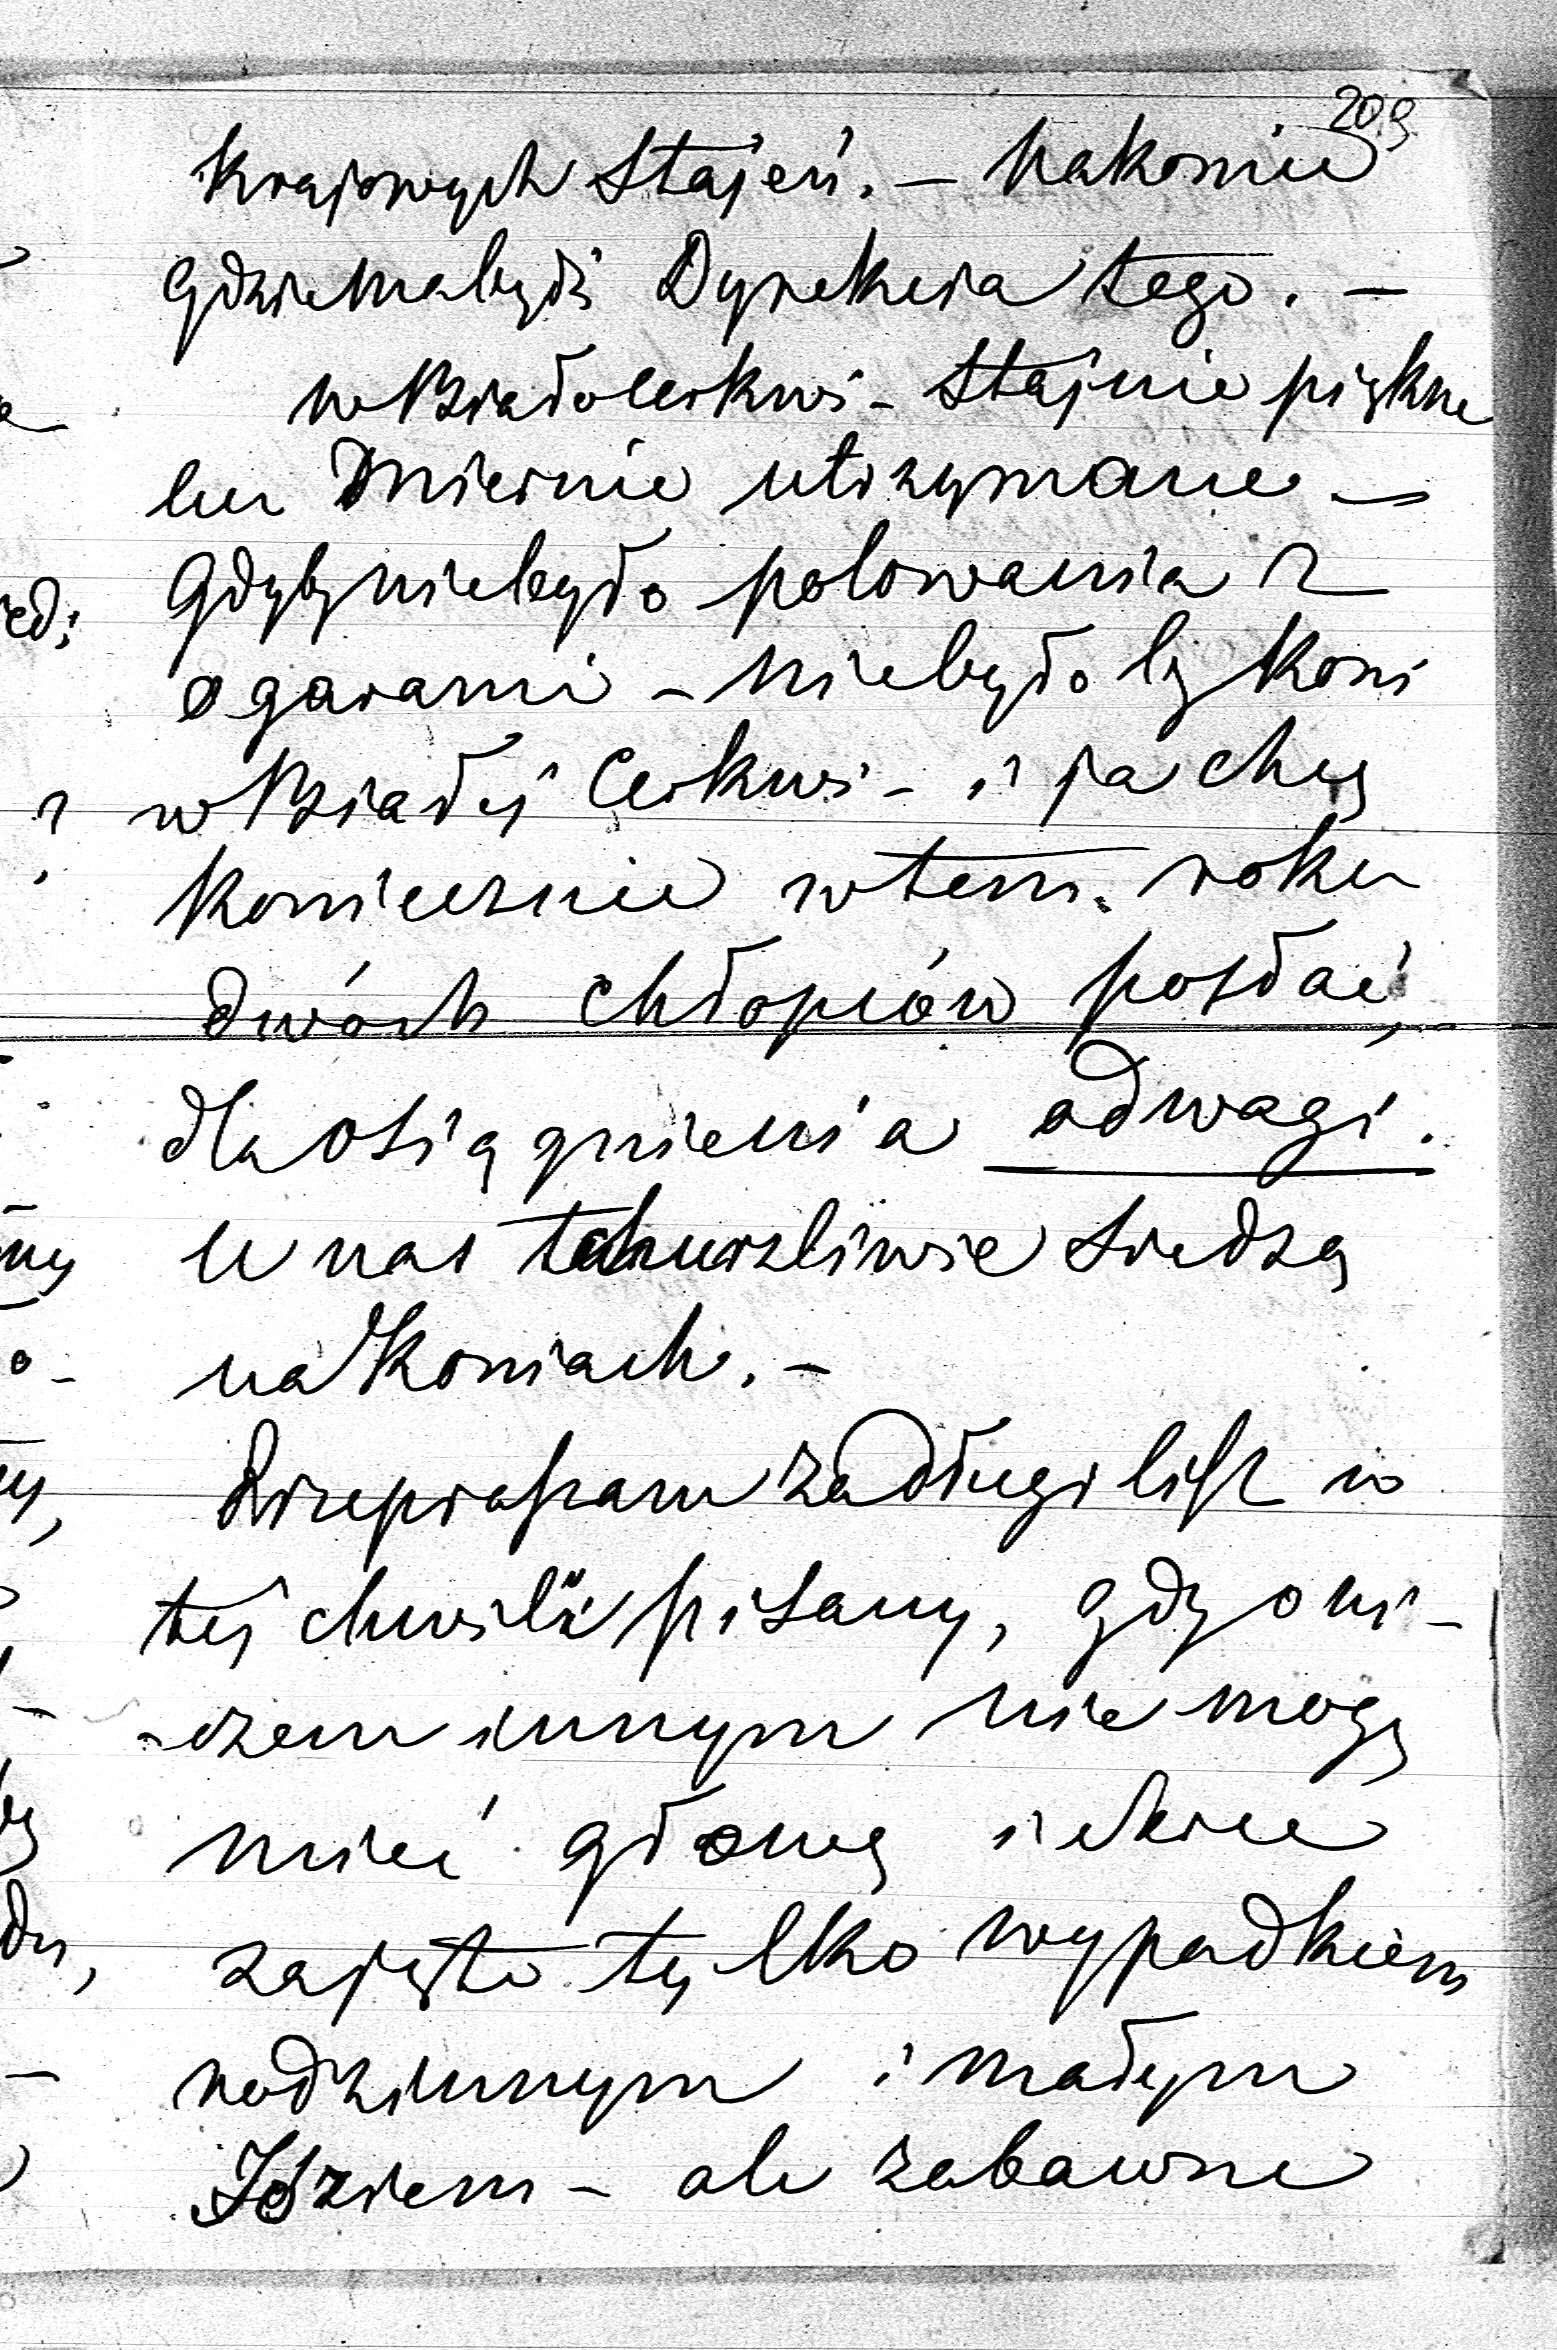 209
krajowych Stajeń. – Nakoniec
gdzie ma bydź Dyrekcia tego. –
w Białocerkwi – Stajnie piękne
lecz miernie utrzymane –
Gdyby niebyło polowania z
ogarami – niebyłoby koni
w Białej Cerkwi – i ja chcę
koniecznie w tem roku
dwóch chłopców posłać,
dla osiągnienia odwagi.
U nas tchurzliwie siedzą
na koniach. –
Przepraszam za długi list w
tej chwili pisany, gdy o ni-
-czem innym nie mogę
mieć głowę i serce
zajęte tylko wypadkiem
rodzinnym i małym
Józiem – ale zabawne